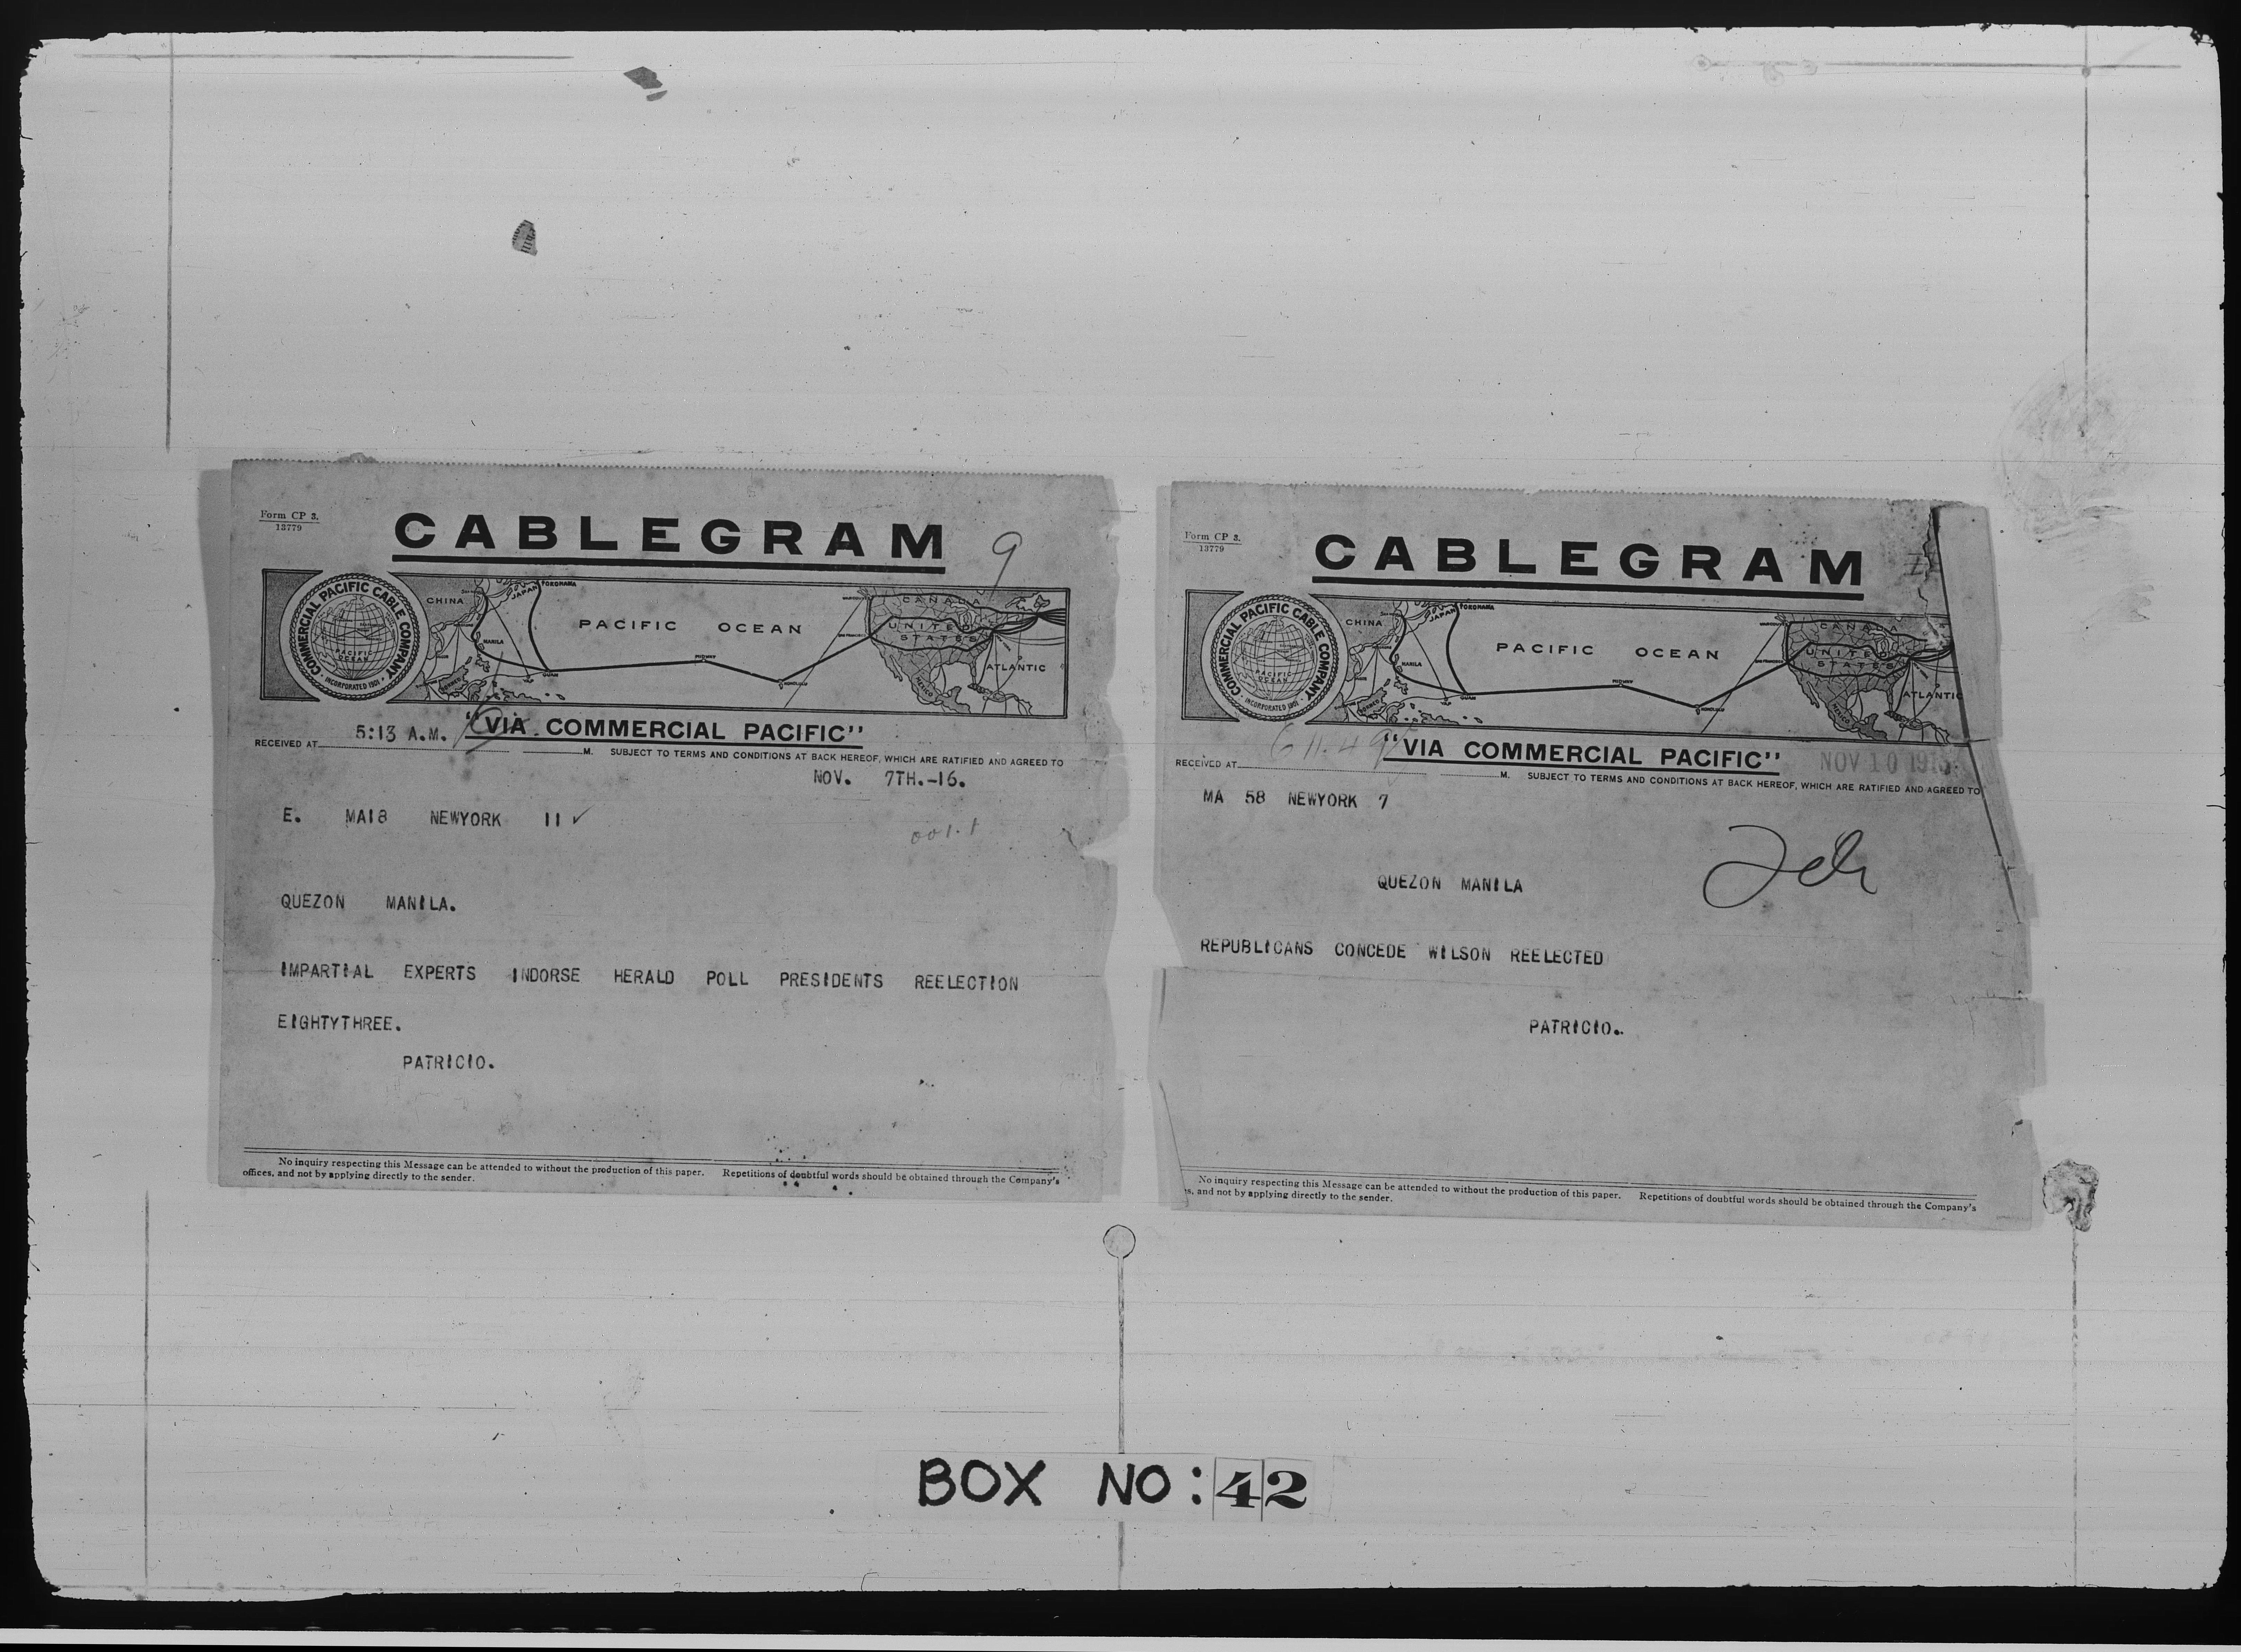 Form CP 3.
13779
CABLEGRAM
9
COMMERCIAL PACIFIC CABLE COMPANY
PACIFIC OCEAN
INCORPORATED 1901
CHINA
JAPAN
YOKOHAMA
MANILA
BORNEO
GUAM
PACIFIC OCEAN
MIDWAY
HONOLULU
SAN FRANCISCO
CANADA
UNITED
STATES
MEXICO
ATLANTIC
5:13 A.M.
"VIA COMMERCIAL PACIFIC"
RECEIVED AT
M. SUBJECT TO TERMS AND CONDITIONS AT BACK HEREOF, WHICH ARE RATIFIED AND AGREED TO
NOV. 7TH.-16.
E. MA18 NEWYORK 11 ✓
QUEZON MANILA.
IMPARTIAL EXPERTS INDORSE HERALD POLL PRESIDENTS REELECTION
EIGHTYTHREE.
PATRICIO.
No inquiry respecting this Message can be attended to without the production of this paper. Repetitions of doubtful words should be obtained through the Company's
offices, and not by applying directly to the sender.
Form CP 3.
13779
CABLEGRAM
COMMERCIAL PACIFIC CABLE COMPANY
PACIFIC OCEAN
INCORPORATED 1901
CHINA
JAPAN
YOKOHAMA
MANILA
BORNEO
GUAM
PACIFIC OCEAN
MIDWAY
HONOLULU
SAN FRANCISCO
CANADA
UNITED
STATES
MEXICO
ATLANTIC
"VIA COMMERCIAL PACIFIC"
NOV 10 1916
RECEIVED AT
M. SUBJECT TO TERMS AND CONDITIONS AT BACK HEREOF, WHICH ARE RATIFIED AND AGREED TO
MA 58 NEWYORK 7
QUEZON MANILA
REPUBLICANS CONCEDE WILSON REELECTED
PATRICIO.
No inquiry respecting this Message can be attended to without the production of this paper. Repetitions of doubtful words should be obtained through the Company's
es, and not by applying directly to the sender.
BOX NO: 42